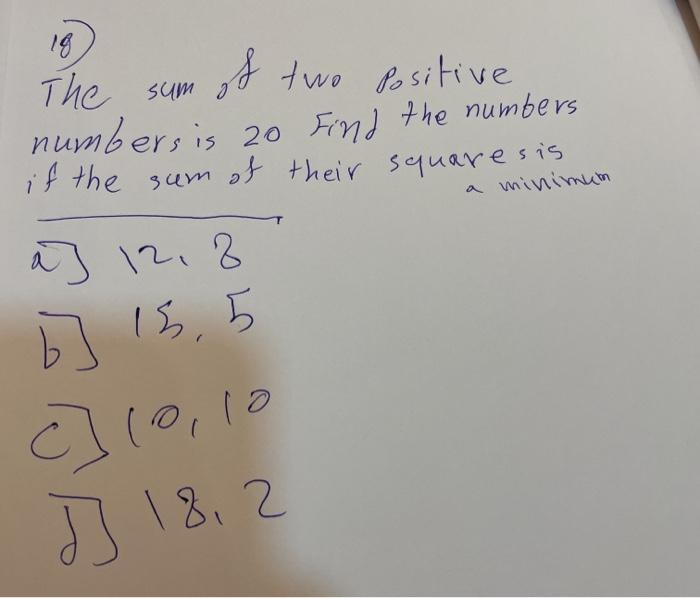 18)
The sum of two Positive
numbers is 20 Find the numbers
if the sum of their squares is
a minimum
a] 12, 8
b] 15, 5
c] 10, 10
d] 18, 2